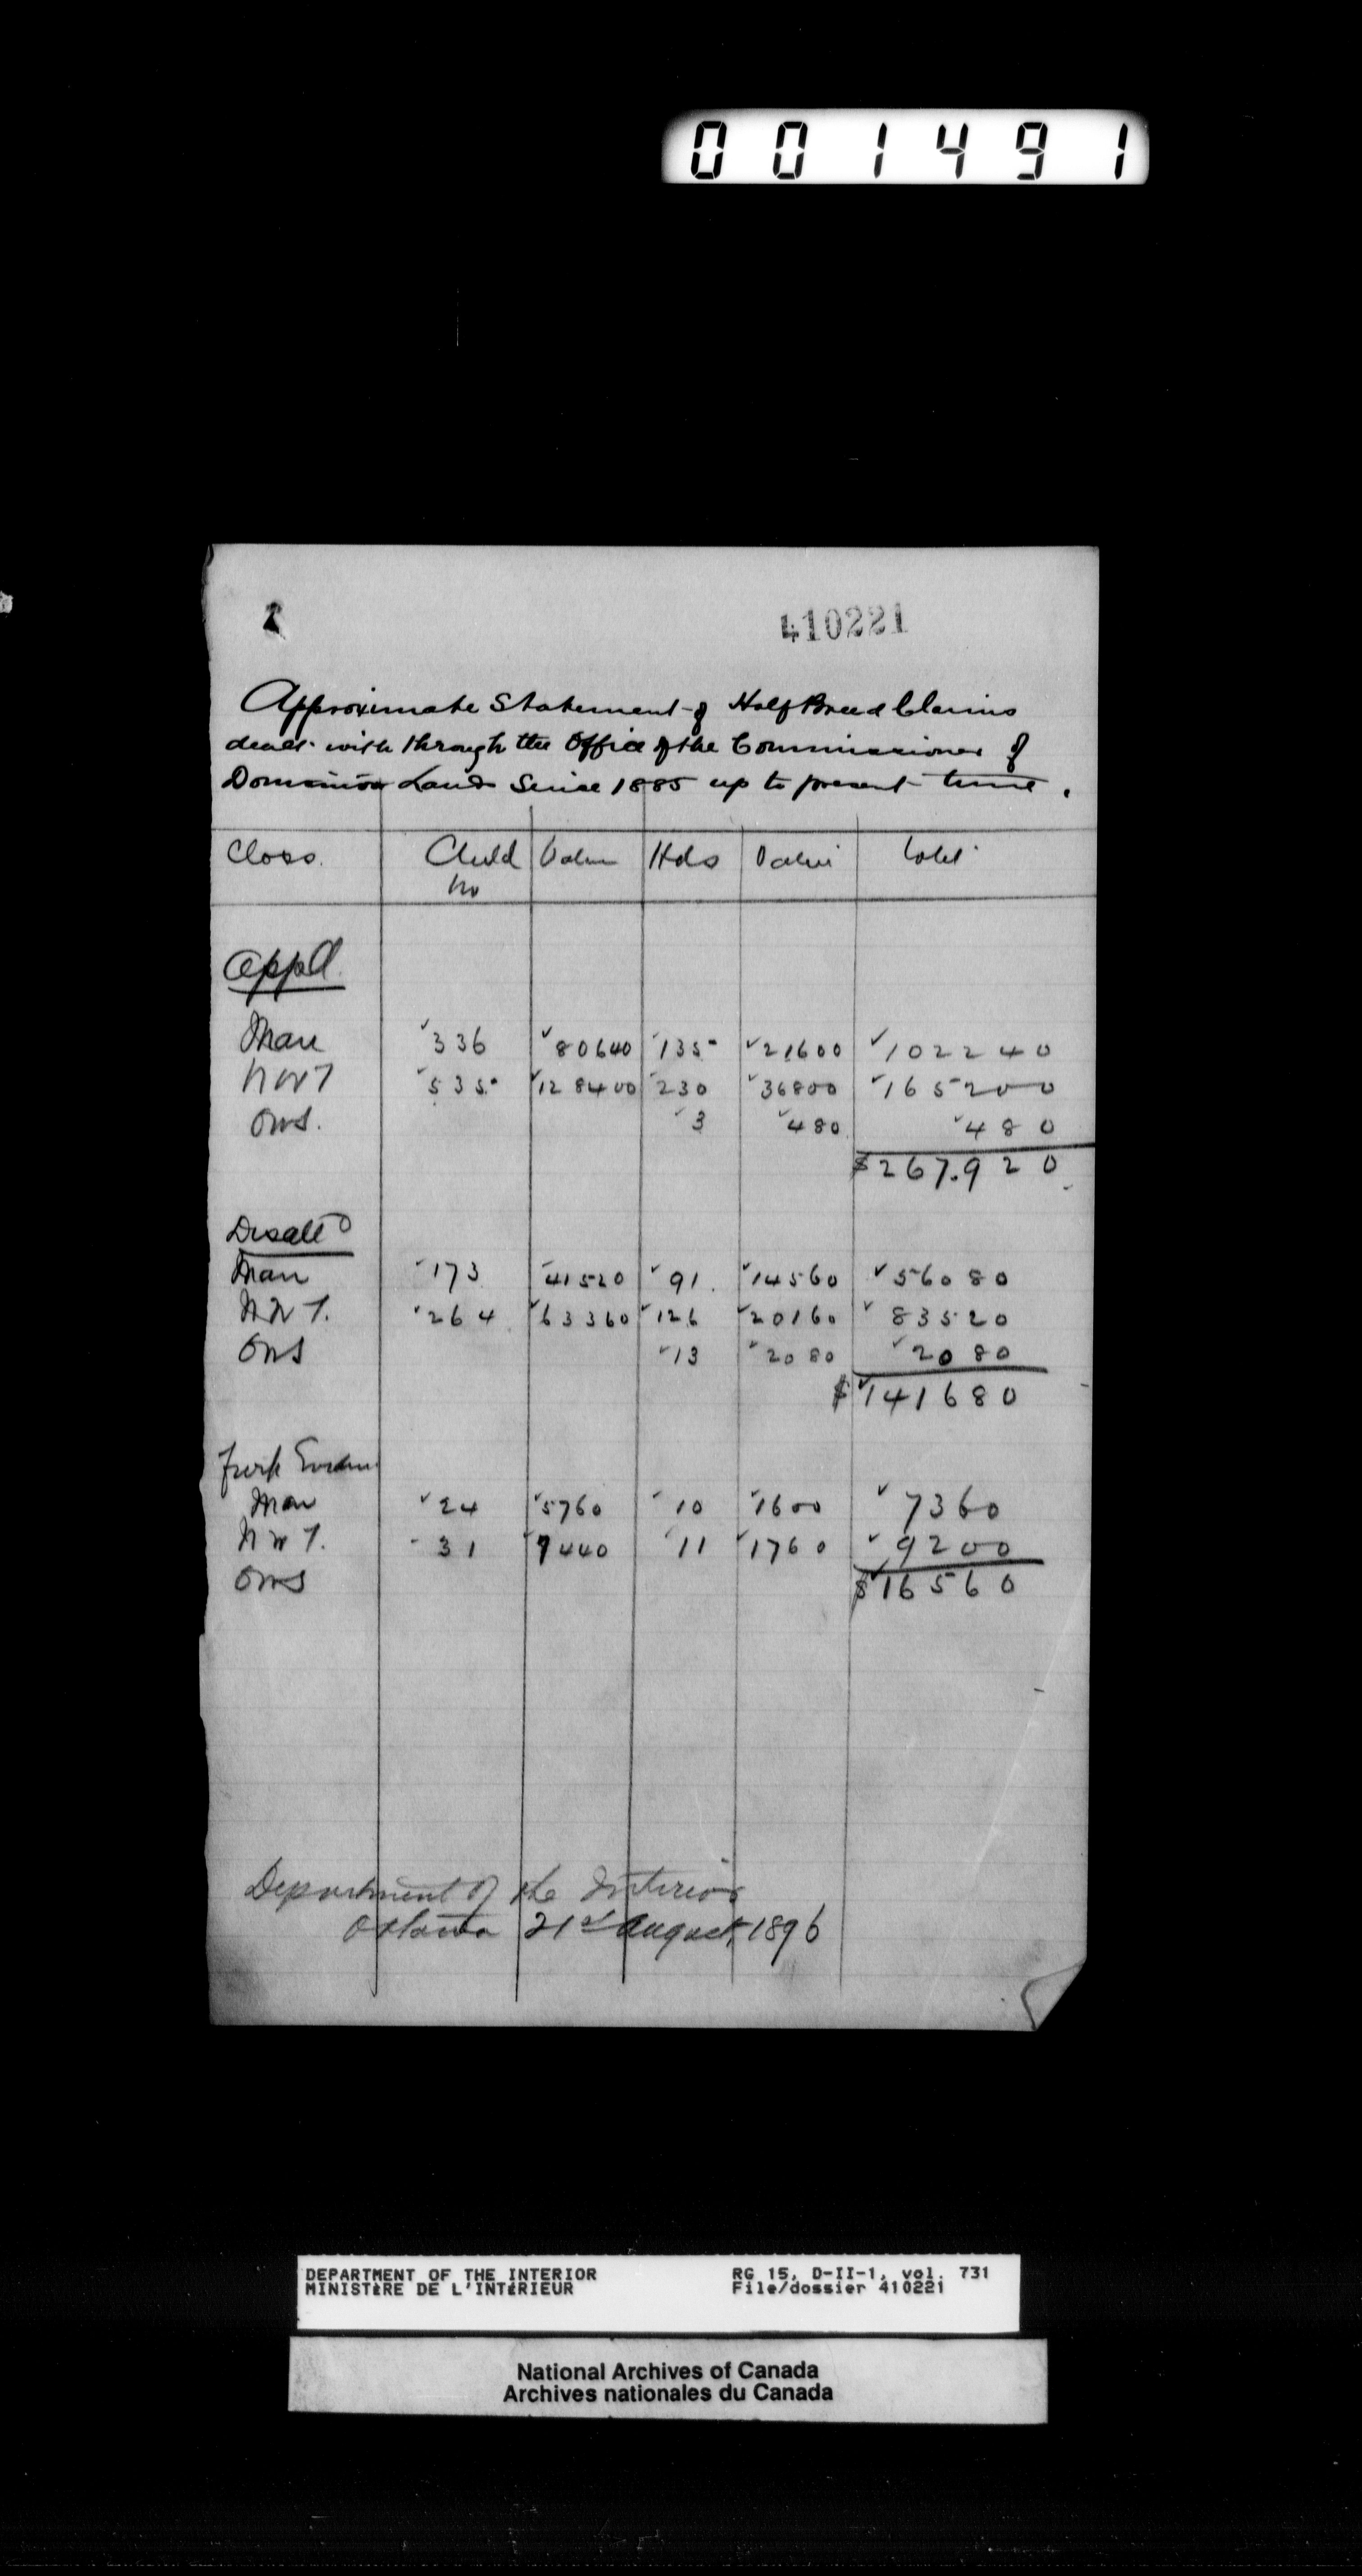 001491
410221
Approximate Statement of Half Breed Claims
dealt with through the Office of the Commissioner of
Dominion Lands Since 1885 up to present time.
Class. Child Value Hds Value Total
No
Appd.
Man 336 80640 135 21600 102240
NWT 535 128400 230 36800 165200
OWS. 3 480 480
$267.920
Disalld
Man 173 41520 91 14560 56080
N.W T. 264 63360 126 20160 83520
OWS 13 2080 2080
$141680
Furth Eviden
Man 24 5760 10 1600 7360
N W T. 31 7440 11 1760 9200
OWS $16560
Department of the Interior
Ottawa 21st August, 1896
DEPARTMENT OF THE INTERIOR RG 15, D-II-1, vol. 731
MINISTÈRE DE L'INTÉRIEUR File/dossier 410221
National Archives of Canada
Archives nationales du Canada